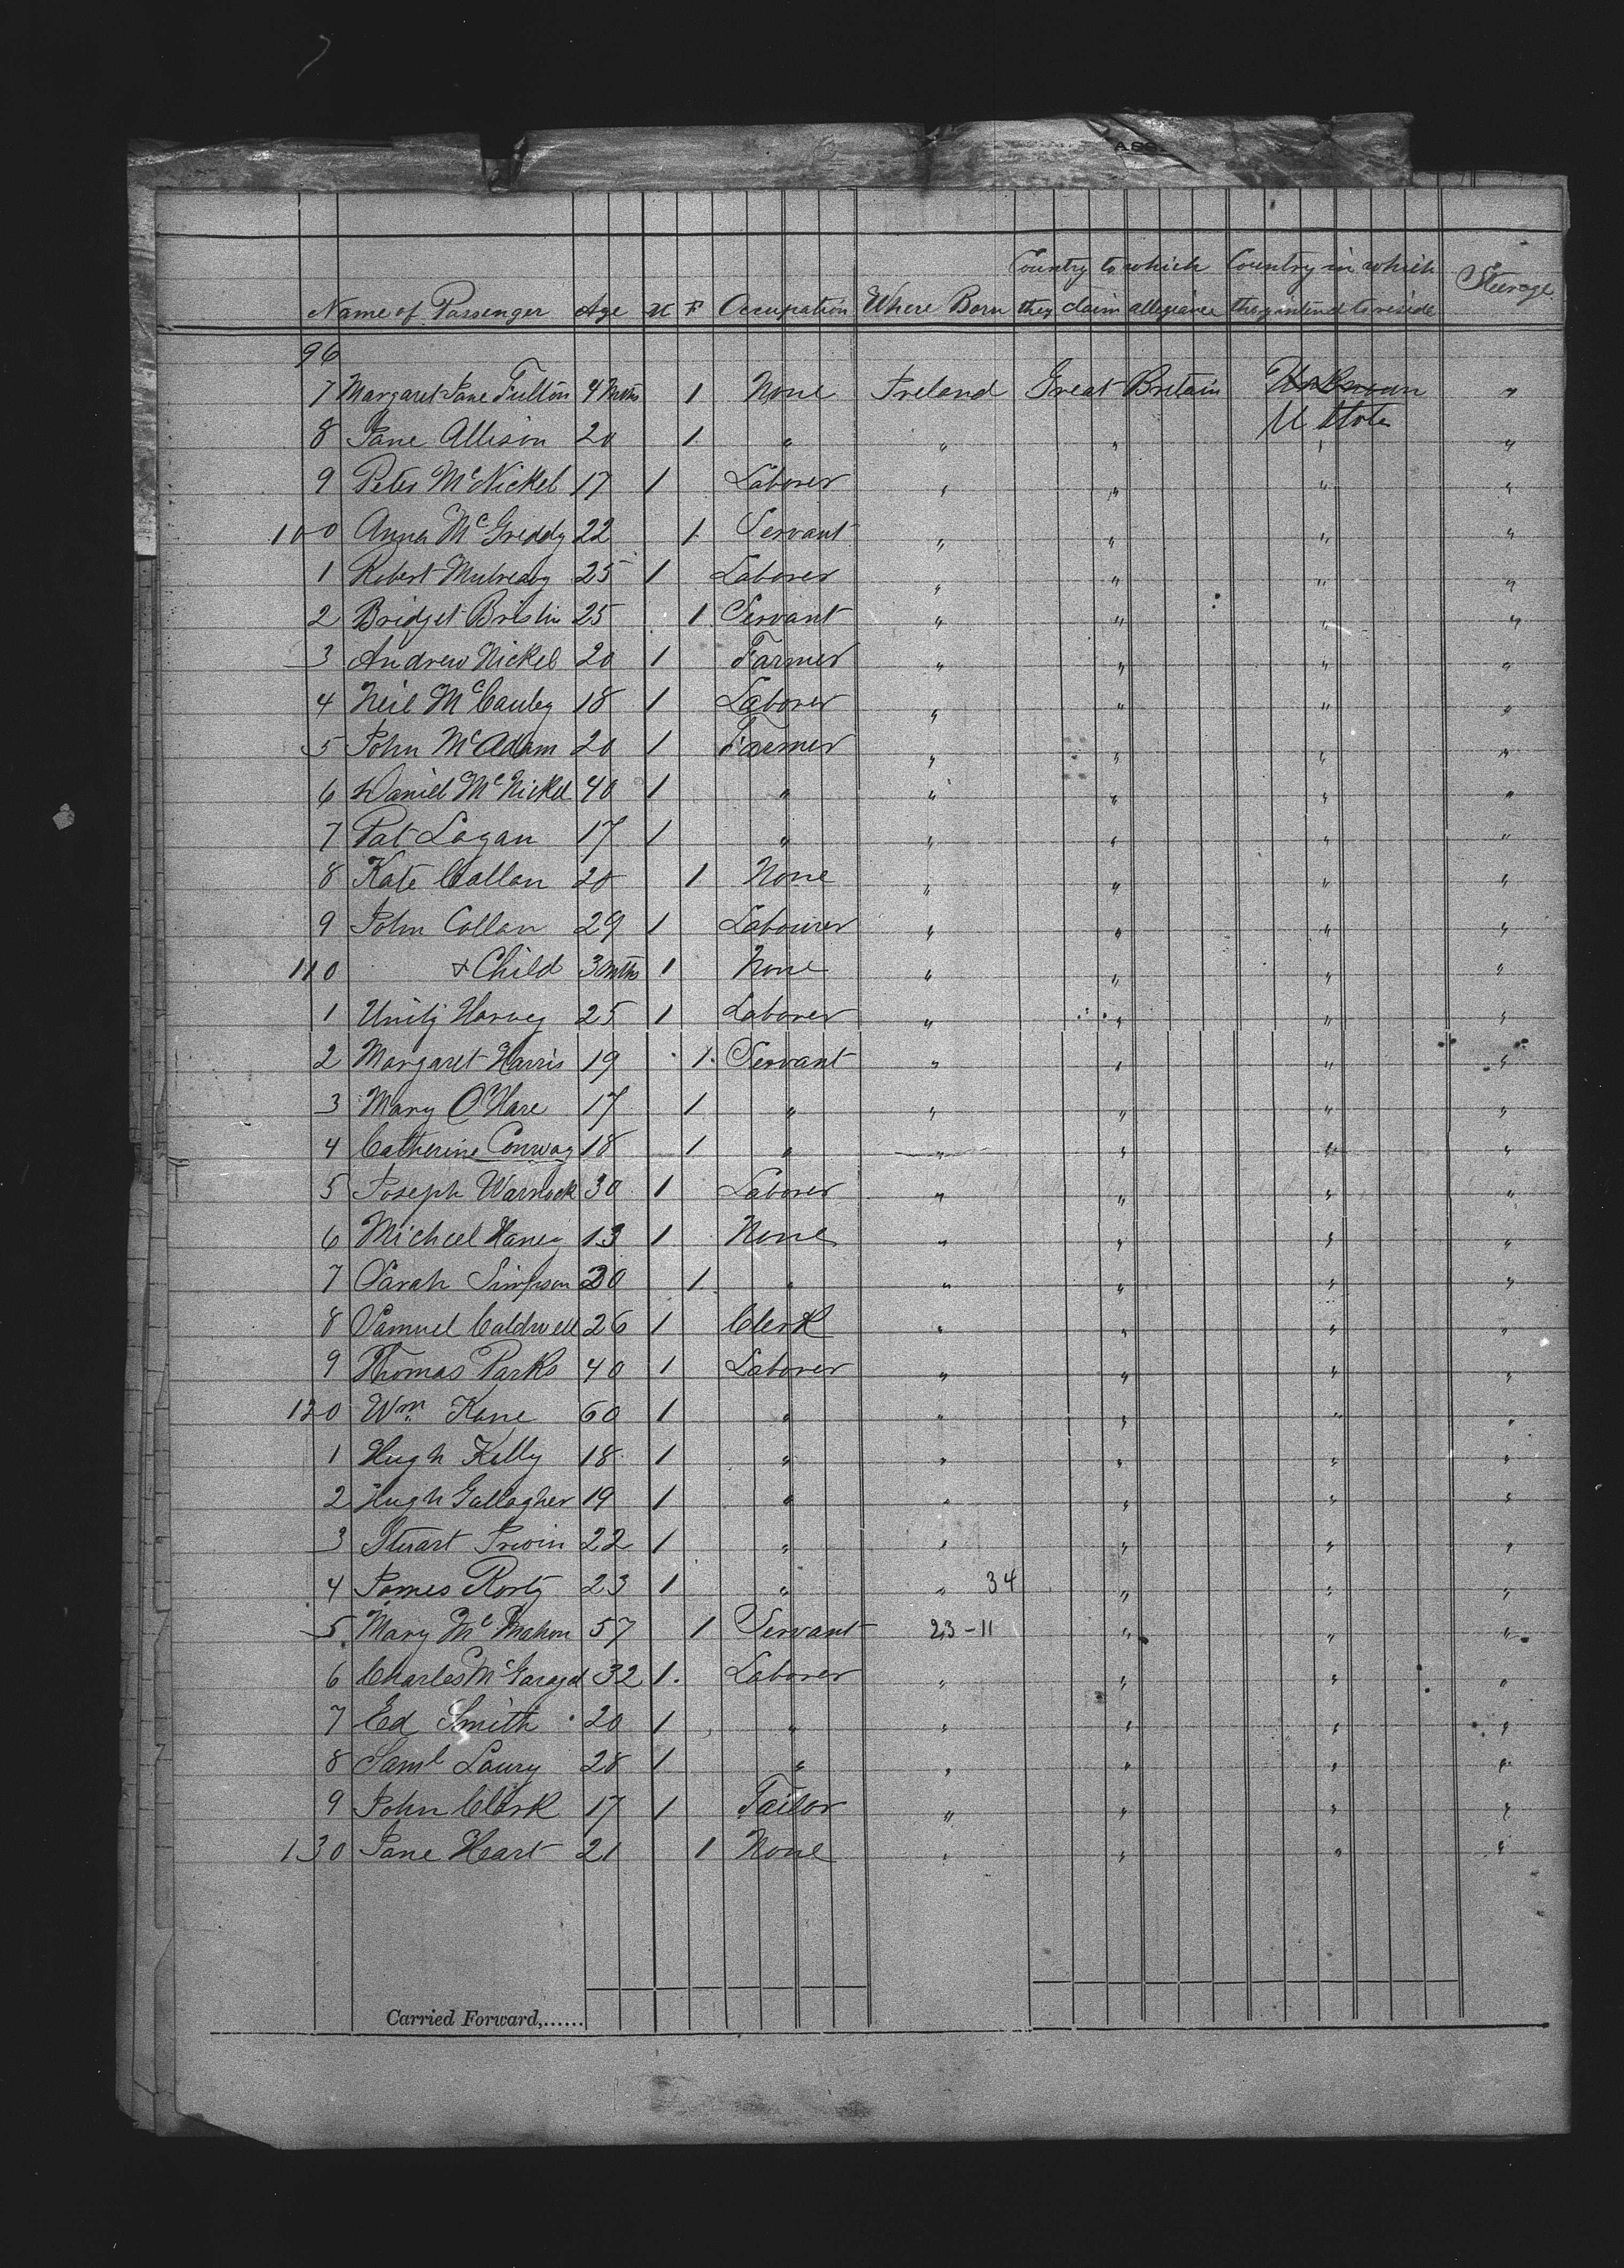 Name of Passenger Age M F Occupation Where Born Country to which they claim allegiance Country in which they intend to reside Steerage
96
7 Margaret Jane Fulton 4 Mths 1 None Ireland Great Britain Unknown "
U State
8 Jane Allison 20 1 " " " " "
9 Peter McNickel 17 1 Laborer " " " "
100 Anna McGriddy 22 1 Servant " " " "
1 Robert 25 1 Laborer " " " "
2 Bridget Brislin 25 1 Servant " " " "
3 Andrew Nickel 20 1 Farmer " " " "
4 Neil McCauley 18 1 Laborer " " " "
5 John McAdam 20 1 Farmer " " " "
6 Daniel McNickel 40 1 " " " " "
7 Pat Logan 17 1 " " " " "
8 Kate Callan 20 1 None " " " "
9 John Callan 29 1 Labourer " " " "
110 + Child 3 mths 1 None " " " "
1 Unity Harvey 25 1 Laborer " " " "
2 Margaret Harris 19 1 Servant " " " "
3 Mary O'Hare 17 1 " " " " "
4 Catherine Conway 18 1 " " " " "
5 Joseph Warnock 30 1 Laborer " " " "
6 Michael 13 1 None " " " "
7 Sarah Simpson 20 1 " " " " "
8 Samuel Caldwell 26 1 Clerk " " " "
9 Thomas Parks 40 1 Laborer " " " "
120 Wm Kane 60 1 " " " " "
1 Hugh Kelly 18 1 " " " " "
2 Hugh Gallagher 19 1 " " " " "
3 Stuart Irwin 22 1 " " " " "
4 James Rorty 23 1 " " 34 " " "
5 Mary McMahon 57 1 Servant 23-11 " " "
6 Charles 32 1 Laborer " " " "
7 Ed Smith 20 1 " " " " "
8 Saml Lowry 28 1 " " " " "
9 John Clark 17 1 Tailor " " " "
130 Jane Heart 21 1 None " " " "
Carried Forward,......